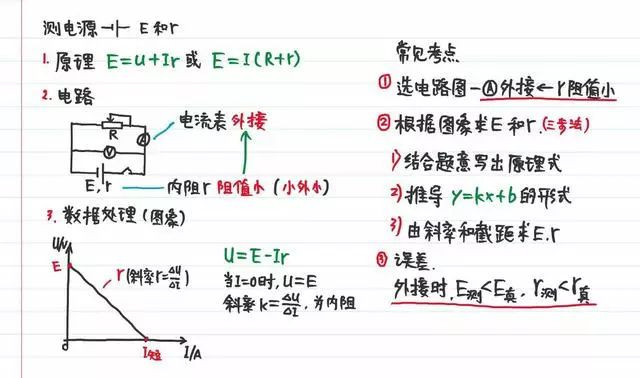 测电源⊣⊢ E和r
1. 原理 E=U+Ir 或 E=I(R+r)
2. 电路
R
A
V
E,r
电流表外接
内阻r 阻值小 (小外小)
3. 数据处理(图象)
U/V
E
r(斜率r=ΔU/ΔI)
0
I短
I/A
U=E-Ir
当I=0时,U=E
斜率k=ΔU/ΔI,为内阻
常见考点
① 选电路图-Ⓐ外接←r阻值小
② 根据图象求E和r.(三步法)
1) 结合题意写出原理式
2) 推导 y=kx+b 的形式
3) 由斜率和截距求E.r
③ 误差.
外接时,E测<E真,r测<r真